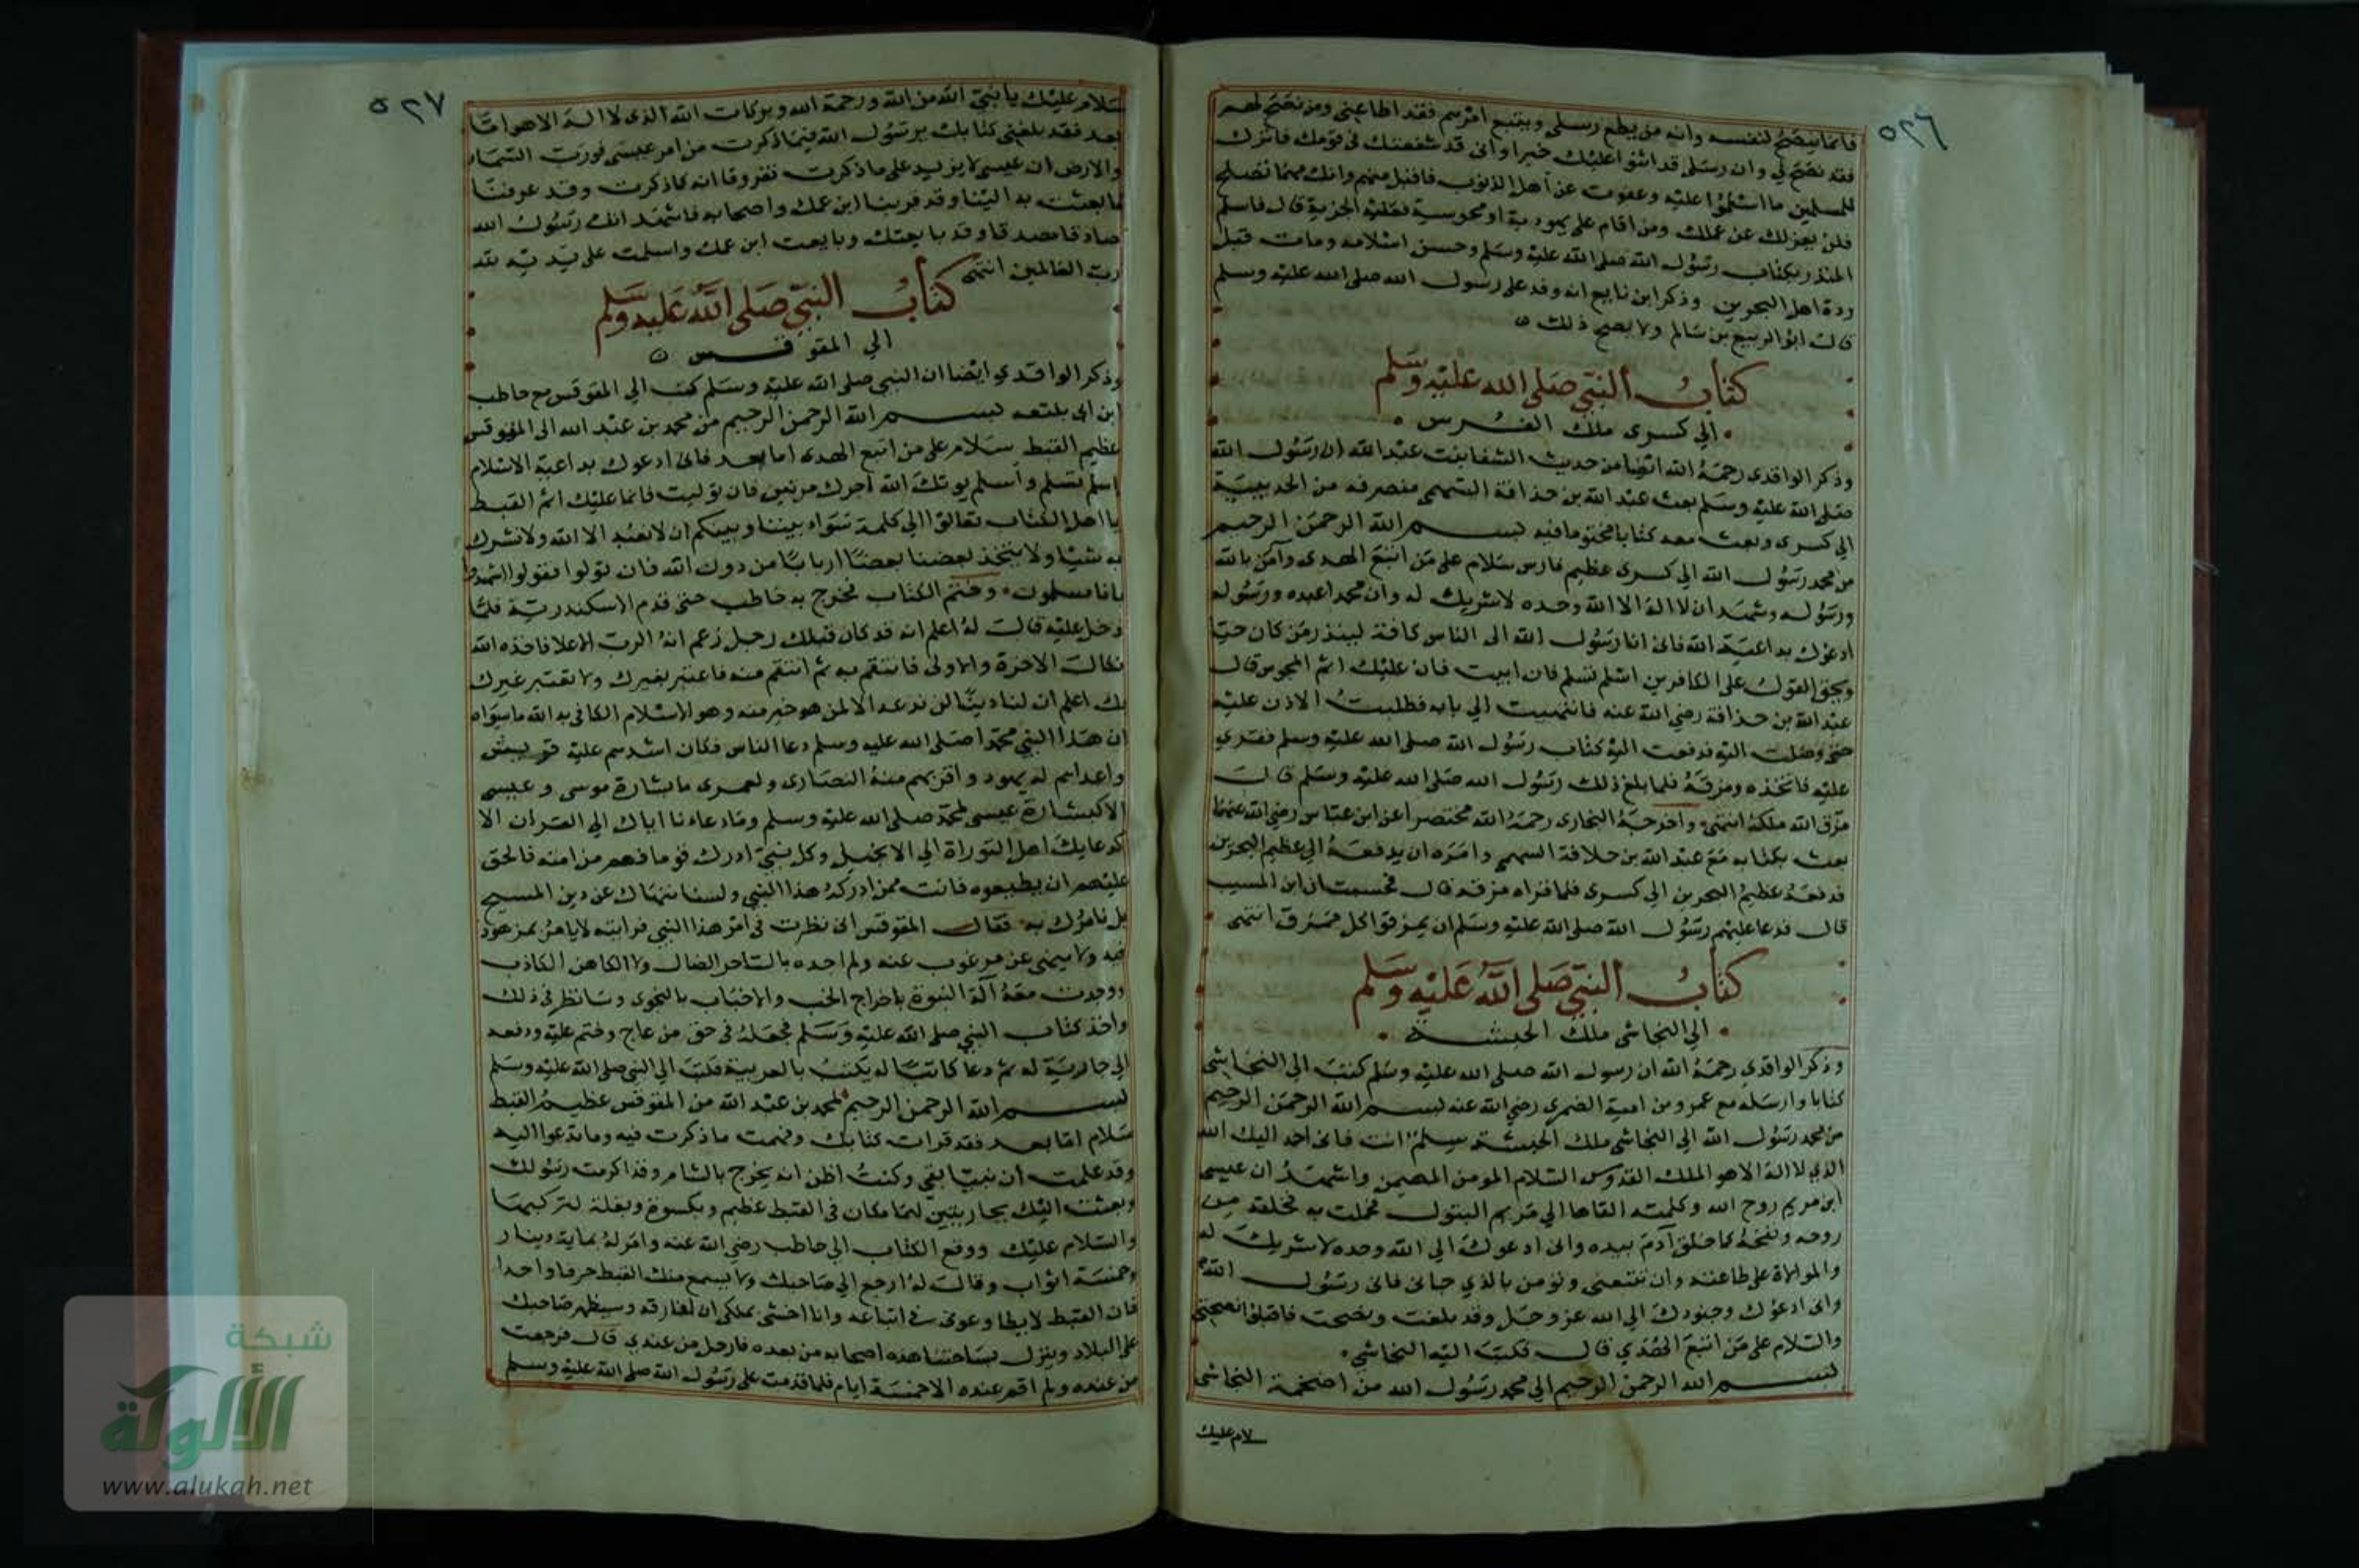 ٥٢٦
فانما ينصح لنفسه وانه من يطع رسلي ويتبع امرهم فقد اطاعني ومن نصح لهم
فقد نصح لي وان رسلي قد اثنوا عليك خيرا واني قد شفعتك في قومك فاترك
للمسلمين ما اسلموا عليه وعفوت عن اهل الذنوب فاقبل منهم وانك مهما تصلح
فلن نعزلك عن عملك ومن اقام على يهودية او مجوسية فعليه الجزية قال فاسلم
المنذر بكتاب رسول الله صلى الله عليه وسلم وحسن اسلامه ومات قبل
ردة اهل البحرين وذكر ابن نابع انه وفد على رسول الله صلى الله عليه وسلم
قال ابو الربيع بن سالم ولا يصح ذلك
كتاب النبي صلى الله عليه وسلم
الي كسرى ملك الفرس
وذكر الواقدي رحمه الله ايضا من حديث الشفا بنت عبد الله ان رسول الله
صلى الله عليه وسلم بعث عبد الله بن حذافة السهمي منصرفه من الحديبية
الي كسرى وبعث معه كتابا مختوما فيه بسم الله الرحمن الرحيم
من محمد رسول الله الي كسرى عظيم فارس سلام على من اتبع الهدى وآمن بالله
ورسوله وشهد ان لا اله الا الله وحده لا شريك له وان محمدا عبده ورسوله
ادعوك بداعية الله فاني انا رسول الله الى الناس كافة لينذر من كان حيا
ويحق القول على الكافرين اسلم تسلم فان ابيت فان عليك اثم المجوس قال
عبد الله بن حذافة رضي الله عنه فانتهيت الي بابه فطلبت الاذن عليه
حتى وصلت اليه فدفعت اليه كتاب رسول الله صلى الله عليه وسلم فقري
عليه فاتخذه ومزقه فلما بلغ ذلك رسول الله صلى الله عليه وسلم قال
مزق الله ملكه انتهى واخرجه البخاري رحمه الله مختصرا عن ابن عباس رضي الله عنهما
بعث بكتابه مع عبد الله بن حذافة السهمي وامره ان يدفعه الي عظيم البحرين
فدفعه عظيم البحرين الي كسرى فلما قراه مزقه قال فحسبت ان ابن المسيب
قال فدعا عليهم رسول الله صلى الله عليه وسلم ان يمزقوا كل ممزق انتهى
كتاب النبي صلى الله عليه وسلم
الي النجاشي ملك الحبشة
وذكر الواقدي رحمه الله ان رسول الله صلى الله عليه وسلم كتب الي النجاشي
كتابا وارسله مع عمرو بن امية الضمري رضي الله عنه بسم الله الرحمن الرحيم
من محمد رسول الله الي النجاشي ملك الحبشة سلم انت فاني احمد اليك الله
الذي لا اله الا هو الملك القدوس السلام المومن المهيمن واشهد ان عيسى
ابن مريم روح الله وكلمته القاها الي مريم البتول فحملت به فخلقه من
روحه ونفخه كما خلق آدم بيده واني ادعوك الي الله وحده لا شريك له
والموالاة على طاعته وان تتبعني وتومن بالذي جاني فاني رسول الله
واني ادعوك وجنودك الي الله عز وجل وقد بلغت ونصحت فاقبلوا نصيحتي
والسلام على من اتبع الهدي قال فكتب اليه النجاشي
بسم الله الرحمن الرحيم الي محمد رسول الله من اصحمة النجاشي
سلام عليك
٥٢٧
سلام عليك يا نبي الله من الله ورحمة الله وبركات الله الذي لا اله الا هو اما
بعد فقد بلغني كتابك يرسول الله فيما ذكرت من امر عيسى فورب السماء
والارض ان عيسى لا يزيد على ما ذكرت تفروقا انه كما ذكرت وقد عرفنا
ما بعثت به الينا وقد قربنا ابن عمك واصحابه فاشهد انك رسول الله
صادقا مصدقا وقد بايعتك وبايعت ابن عمك واسلمت على يديه لله
رب العالمين انتهى
كتاب النبي صلى الله عليه وسلم
الي المقوقس
وذكر الواقدي ايضا ان النبي صلى الله عليه وسلم كتب الي المقوقس مع حاطب
ابن ابي بلتعه بسم الله الرحمن الرحيم من محمد بن عبد الله الى المقوقس
عظيم القبط سلام على من اتبع الهدى اما بعد فاني ادعوك بداعية الاسلام
اسلم تسلم واسلم يوتك الله اجرك مرتين فان توليت فانما عليك اثم القبط
يا اهل الكتاب تعالوا الي كلمة سواء بيننا وبينكم ان لا نعبد الا الله ولا نشرك
به شيا ولا يتخذ بعضنا بعضا اربابا من دون الله فان تولوا فقولوا اشهدوا
بانا مسلمون وختم الكتاب فخرج به حاطب حتى قدم الاسكندرية فلما
دخل عليه قال له اعلم انه قد كان قبلك رجل زعم انه الرب الاعلا فاخذه الله
نكال الاخرة والاولى فانتقم به ثم انتقم منه فاعتبر بغيرك ولا تعتبر غيرك
بك اعلم ان لنا دينا لن ندعه الا لمن هو خير منه وهو الاسلام الكافي به الله ما سواه
ان هذا النبي محمدا صلى الله عليه وسلم دعا الناس فكان اشدهم عليه قريش
واعداهم له يهود واقربهم منه النصارى ولعمري ما بشارة موسى وعيسى
الا كبشارة عيسى لمحمد صلى الله عليه وسلم وما دعاءنا اياك الي القران الا
كدعايك اهل التوراة الي الانجيل وكل نبي ادرك قوما فهم من امته فالحق
عليهم ان يطيعوه فانت ممن ادركه هذا النبي ولسنا ننهاك عن دين المسيح
بل نامرك به فقال المقوقس اني نظرت في امر هذا النبي فرايته لا يامر بمزهود
فيه ولا ينهى عن مرغوب عنه ولم اجده بالساحر الضال ولا الكاهن الكاذب
ووجدت معه آلة النبوة باخراج الخب والاخبار بالنجوى وسانظر في ذلك
واخذ كتاب النبي صلى الله عليه وسلم فجعله في حق من عاج وختم عليه ودفعه
الي جارية له ثم دعا كاتبا له يكتب بالعربية فكتب الي النبي صلى الله عليه وسلم
بسم الله الرحمن الرحيم لمحمد بن عبد الله من المقوقس عظيم القبط
سلام اما بعد فقد قرات كتابك وفهمت ما ذكرت فيه وما تدعوا اليه
وقد علمت ان نبيا بقي وكنت اظن انه يخرج بالشام وقد اكرمت رسولك
وبعثت اليك بجاريتين لهما مكان في القبط عظيم وبكسوة وبغلة لتركبها
والسلام عليك ودفع الكتاب الي حاطب رضي الله عنه وامر له بماية دينار
وخمسة اثواب وقال له ارجع الي صاحبك ولا يسمع منك القبط حرفا واحدا
فان القبط لا يطاوعوني في اتباعه وانا اخشى بملكي ان افارقه وسيظهر صاحبك
على البلاد وينزل بساحتنا هذه اصحابه من بعده فارحل من عندي قال فرجعت
من عنده ولم اقم عنده الا خمسة ايام فلما قدمت على رسول الله صلى الله عليه وسلم
شبكة
الألوكة
www.alukah.net